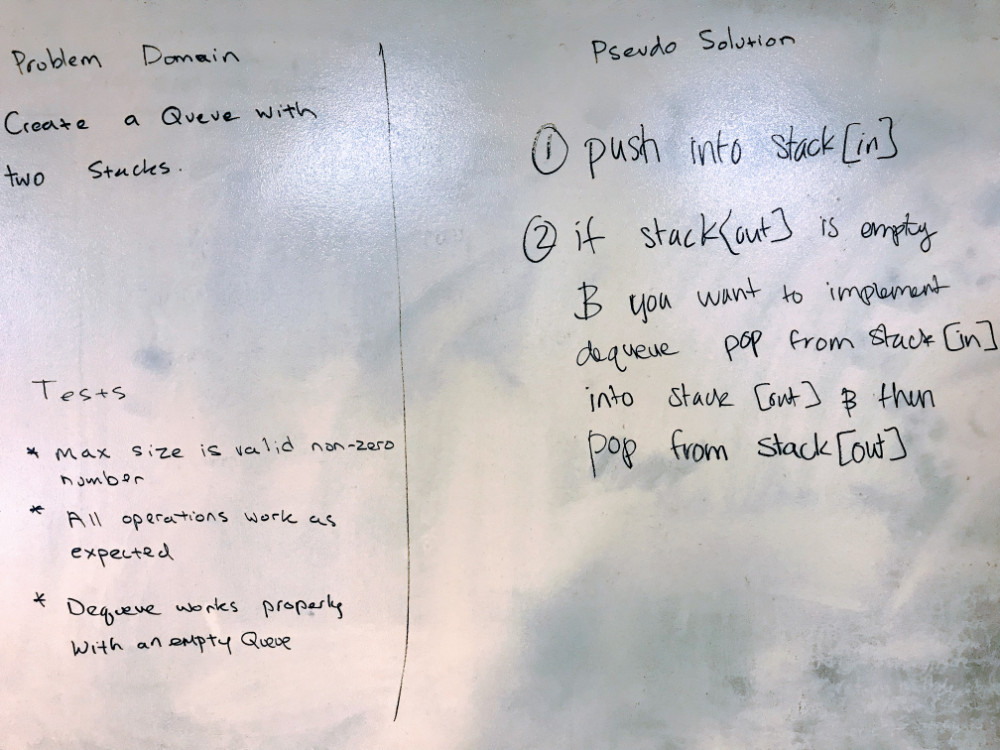 Problem Domain
Create a Queue with
two Stacks.
Tests
* Max size is valid non-zero
number
* All operations work as
expected
* Dequeue works properly
with an empty Queue
Pseudo Solution
① push into stack[in]
② if stack[out] is empty
& you want to implement
dequeue pop from stack [in]
into stack [out] & then
pop from stack[out]